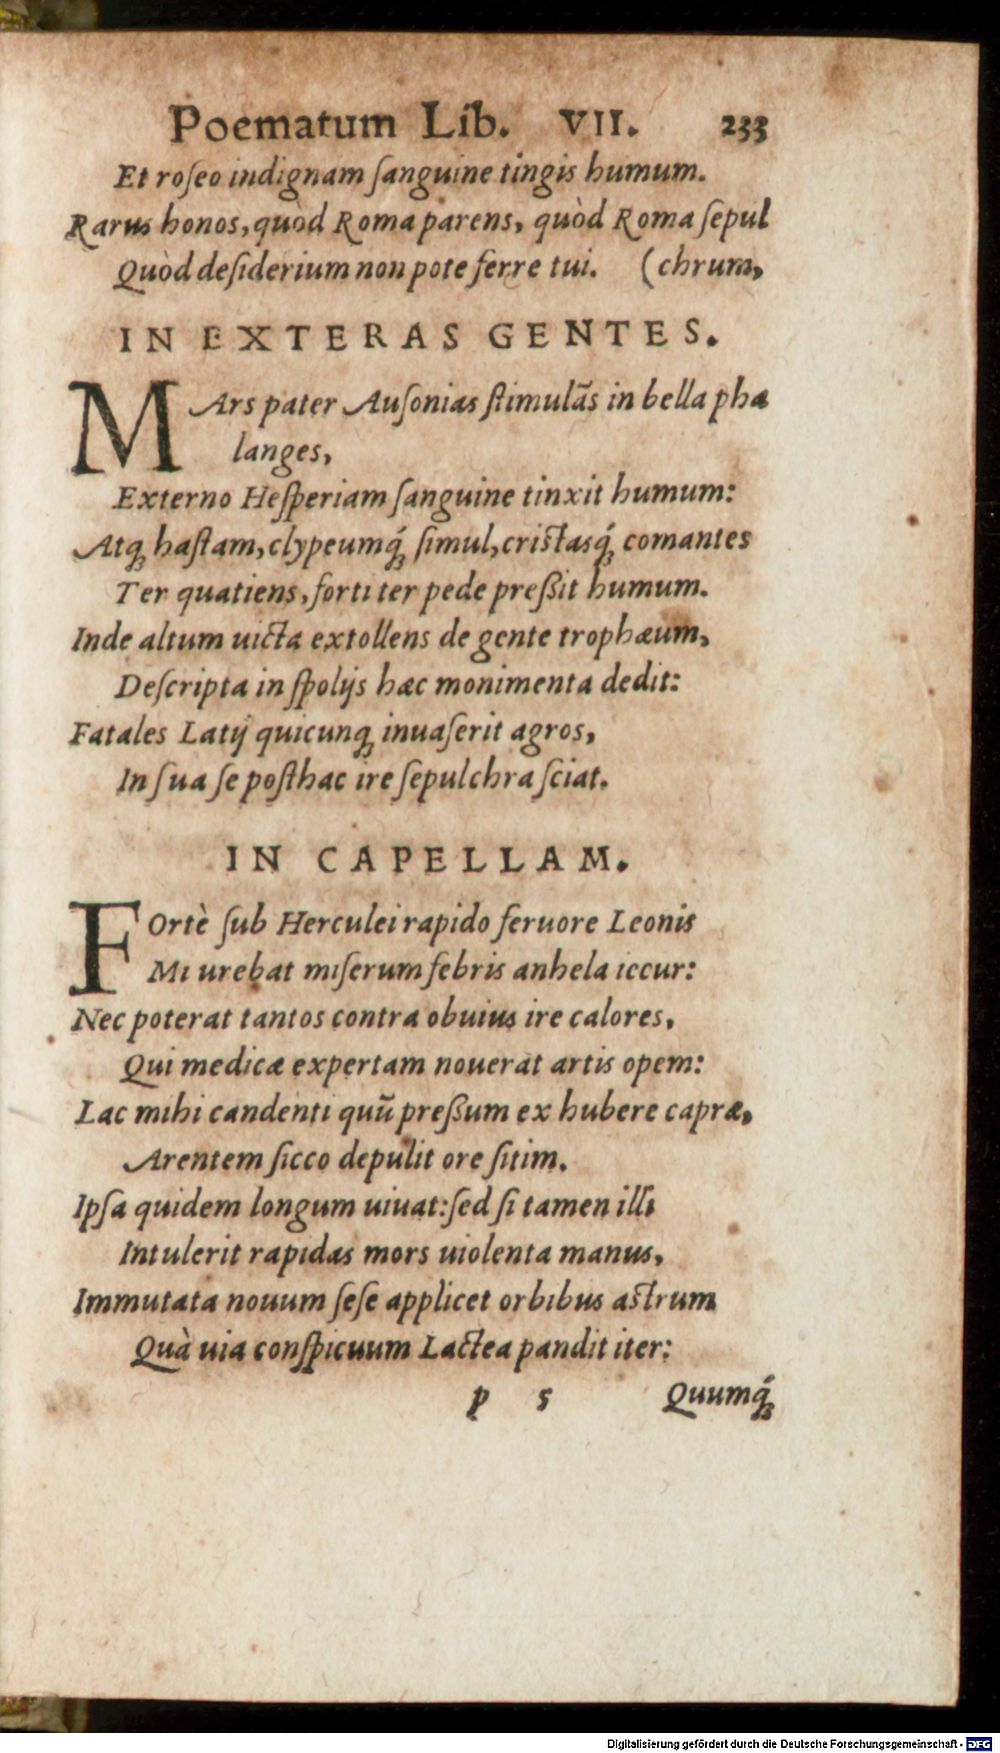 Poematum Lib. VII. 233
Et roſeo indignam ſanguine tingis humum.
Rarus honos, quòd Roma parens, quòd Roma ſepul
Quòd deſiderium non pote ferre tui. (chrum,
IN EXTERAS GENTES.
MArs pater Auſonias ſtimulãs in bella pha
langes,
Externo Heſperiam ſanguine tinxit humum:
Atq; haſtam, clypeumq́; ſimul, criſtasq́; comantes
Ter quatiens, forti ter pede preßit humum.
Inde altum uicta extollens de gente trophæum,
Deſcripta in ſpolijs hæc monimenta dedit:
Fatales Latij quicunq; inuaſerit agros,
In ſua ſe poſthac ire ſepulchra ſciat.
IN CAPELLAM.
FOrtè ſub Herculei rapido feruore Leonis
Mi urebat miſerum febris anhela iecur:
Nec poterat tantos contra obuius ire calores,
Qui medicæ expertam nouerat artis opem:
Lac mihi candenti quũ preßum ex hubere capræ,
Arentem ſicco depulit ore ſitim.
Ipſa quidem longum uiuat: ſed ſi tamen illi
Intulerit rapidas mors uiolenta manus,
Immutata nouum ſeſe applicet orbibus aſtrum
Quà uia conſpicuum Lactea pandit iter:
p 5 Quumq́;
Digitalisierung gefördert durch die Deutsche Forschungsgemeinschaft - DFG